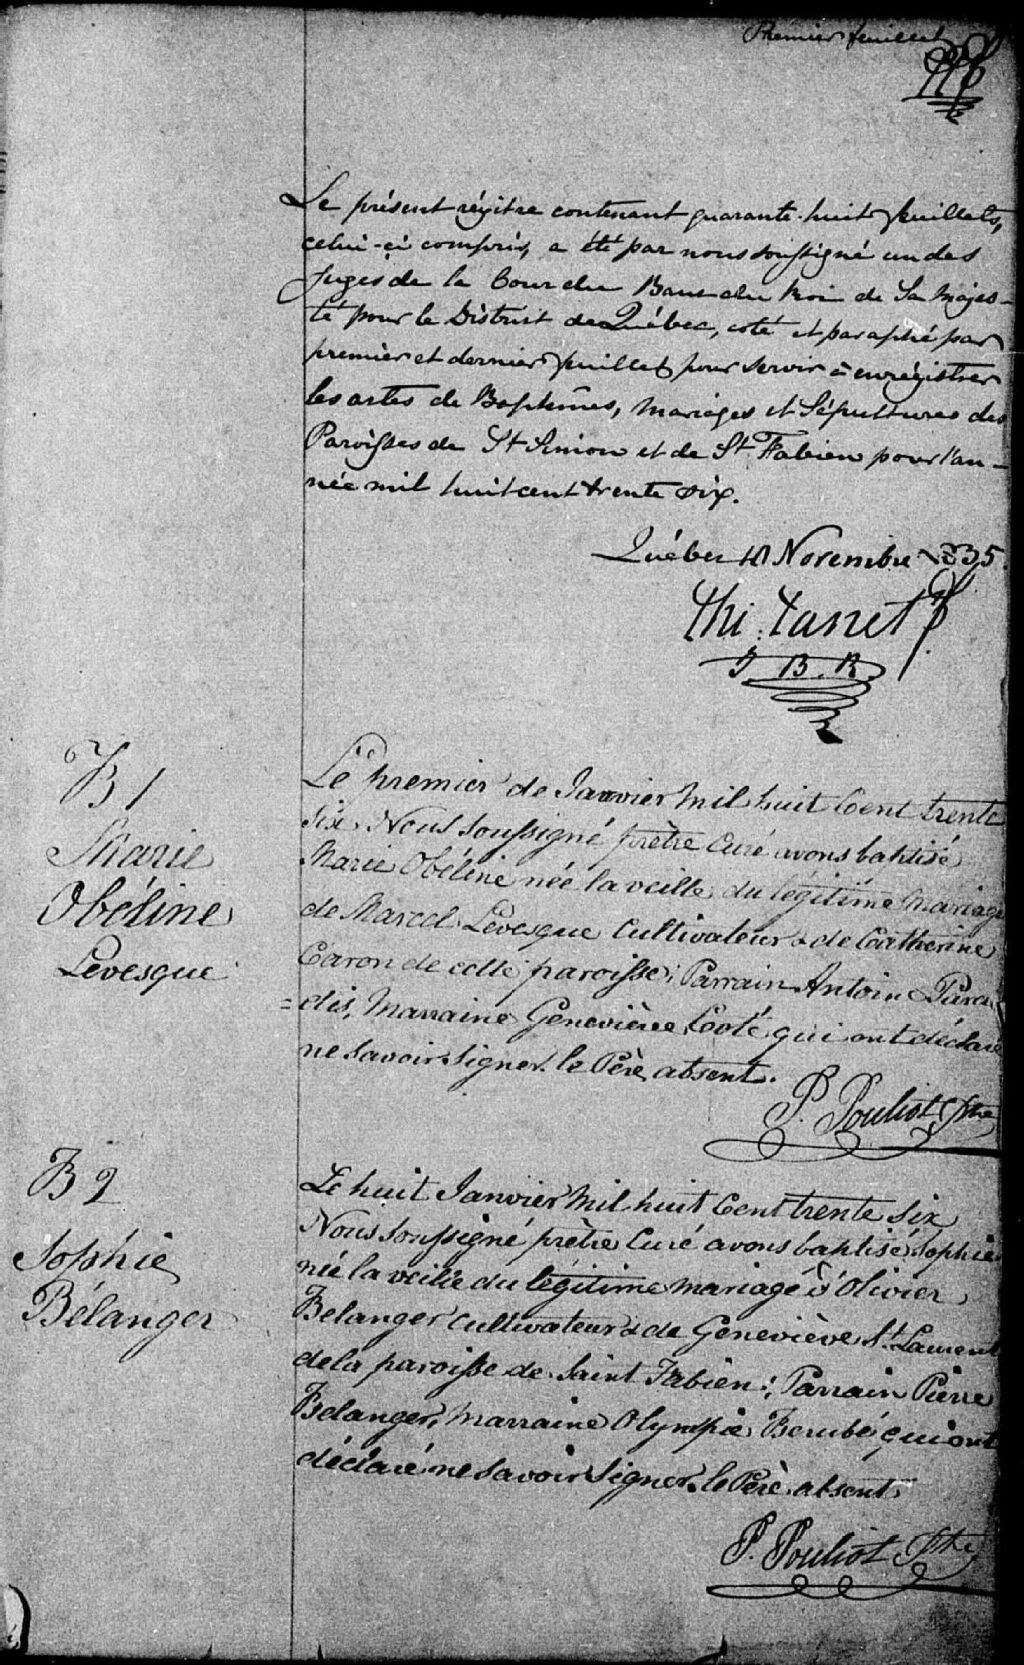 Premier feuillet
Le présent régitre contenant quarante-huit feuillets,
celui-ci compris, a été par nous soussigné un des
Juges de la Cour du Banc du Roi de Sa Majes-
té pour le District de Québec, coté et paraphé par
premier et dernier feuillet pour servir à enrégistrer
les actes de Baptêmes, Mariages et Sépultures des
Paroisses de St Simon et de St Fabien pour l'an-
née mil huit cent trente six.
Québec 18 Novembre 1835.
J B. R.
B 1
Marie
Obéline
Levesque
Le premier de Janvier Mil huit Cent trente
Six Nous soussigné prêtre Curé avons baptisé
Marie Obéline née la veille du légitime Mariage
de Marcel Levesque Cultivateur & de Catherine
Caron de cette paroisse; Parrain Antoine Para
=dis, Marraine Geneviève Coté qui ont déclaré
ne savoir signer. le Père absent.
P. Pouliot Ptre
B 2
Sophie
Bélanger
Le huit Janvier Mil huit Cent trente six
Nous soussigné prêtre Curé avons baptisé Sophie
née la veille du légitime mariage d'Olivier
Belanger Cultivateur & de Geneviève St. Laurent
de la paroisse de Saint Fabien; Parrain Pierre
Belanger, Marraine Olympie Berubé qui ont
déclaré ne savoir signer. le Père absent
P. Pouliot Ptre